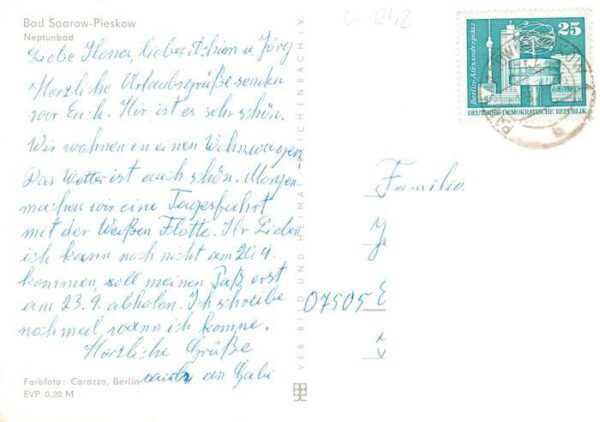 Bad Saarow-Pieskow
Neptunbad
Liebe Ilona, lieber Achim u Jörg
Herzliche Urlaubsgrüße senden
wir Euch. Hir ist es sehr schön.
Wir wohnen in einen Wohnwagen.
Das Wetter ist auch schön. Morgen
machen wir eine Tagesfahrt
mit der Weißen Flotte. Ihr Lieben
ich kann noch nicht am 20.9.
kommen, soll meinen Paß erst
am 23.9. abholen. Ich schreibe
nochmal wann ich komme.
Herzliche Grüße
Gabi
Farbfoto: Corazza, Berlin
EVP 0,20 M
VEB BILD UND HEIMAT REICHENBACH i. V.
25
Berlin, Alexanderplatz
DEUTSCHE DEMOKRATISCHE REPUBLIK
Familie
07505